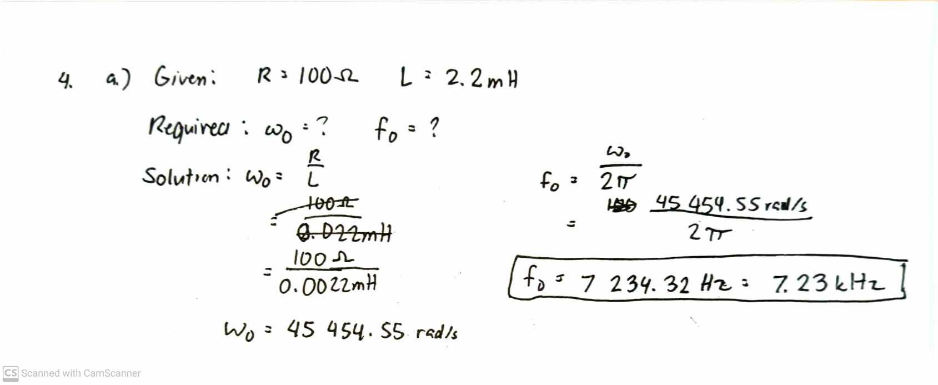 4. a.) Given: R = 100 Ω L = 2.2 mH
Required: ω₀ = ? f₀ = ?
Solution: ω₀ = R/L
= 100 Ω / 0.022mH
= 100 Ω / 0.0022mH
ω₀ = 45 454.55 rad/s
f₀ = ω₀ / 2π
= 45 454.55 rad/s / 2π
f₀ = 7 234.32 Hz = 7.23 kHz
CS Scanned with CamScanner